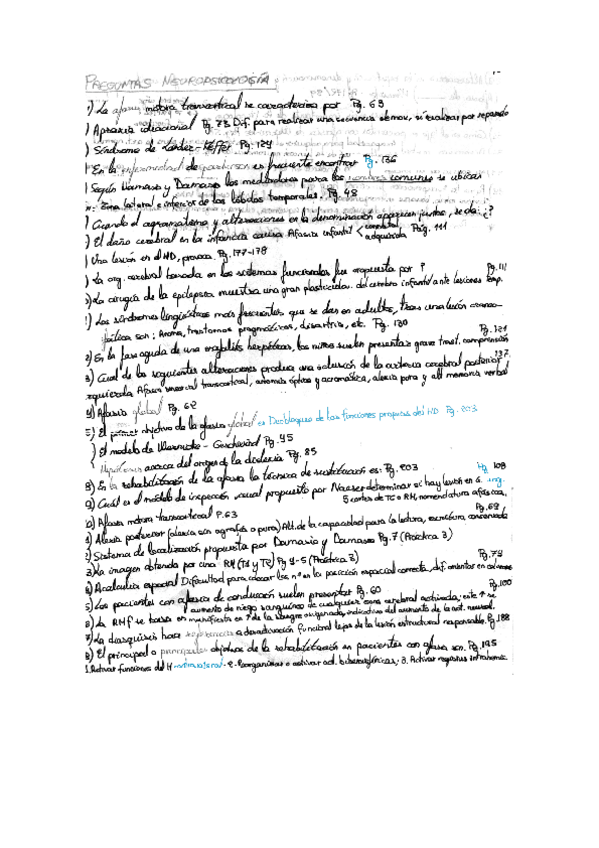 PREGUNTAS NEUROPSICOLOGÍA
1) La afasia motora transcortical se caracteriza por Pg. 63
) Apraxia ideacional Pg. 73 Dif. para realizar una secuencia de mov, si realizar por separado
) Síndrome de Landau-Kleffner Pg. 124
) En la enfermedad de parkinson es frecuente encontrar Pg. 136
) Según Damasio y Damasio los mediadores para los nombres comunes se ubican
Zona lateral e inferior de los lóbulos temporales. Pg. 48
) Cuando el agramatismo y alteraciones en la denominación aparecen juntos, se da: ¿?
) El daño cerebral en la infancia causa Afasia infantil < congénita adquirida Pag. 111
) Una lesión en el HD, provoca Pg. 177-178
) La org. cerebral basada en los sistemas funcionales fue propuesta por ? Pg. 111
) La cirugía de la epilepsia muestra una gran plasticidad del cerebro infantil ante lesiones temp.
) Los síndromes lingüísticos más frecuentes que se dan en adultos, tras una lesión
son: Anomia, trastornos pragmáticos, disartria, etc. Pg. 130
2) En la fase aguda de una encefalitis herpética, los niños suelen presentar grave trast. comprensión Pg. 121
3) Cual de las siguientes alteraciones produce una oclusión de la arteria cerebral posterior 137
izquierda Afasia sensorial transcortical, anomia óptica y acromática, alexia pura y alt memoria verbal
4) Afasia global Pg. 62
5) El objetivo de la afasia global es Desbloqueo de las funciones propias del HD Pg. 203
) El modelo de Wernicke - Geschwind Pg. 45
) Hipótesis acerca del origen de la dislexia Pg. 85
8) En la rehabilitación de la afasia la técnica de sustitución es: Pg. 203
9) Cuál es el modelo de inspección visual propuesto por Naeser determinar si hay lesión en á. ling. Pg 108
5 cortes de TC o RM, nomenclatura afásica.
20) Afasia motora transcortical P. 63
1) Alexia posterior (alexia sin agrafia o pura) Alt. de la capacidad para la lectura, escritura conservada Pg. 69
2) Sistema de localización propuesto por Damasio y Damasio Pg. 7 (Práctica 3)
3) La imagen obtenida por una RM (T1 y T2) Pg 4-5 (Práctica 3)
4) Acalculia espacial Dificultad para colocar los nº en la posición espacial correcta, dif. orientar en columnas Pg. 79
5) Los pacientes con afasia de conducción suelen presentar Pg. 60
6) La RMf se basa en aumento de riego sanguíneo de cualquier zona cerebral activada; este ↑ se Pg. 100
manifiesta en ↑ de la sangre oxigenada, indicativo del aumento de la act. neuronal.
7) La diasquisis hace referencia a desactivación funcional lejos de la lesión estructural responsable. Pg. 188
8) El principal o principales objetivos de la rehabilitación en pacientes con afasia son. Pg. 195
1. Activar funciones del H contralateral - 2. Reorganizar o activar act. bihemisféricas; 3. Activar regiones intrahemis.